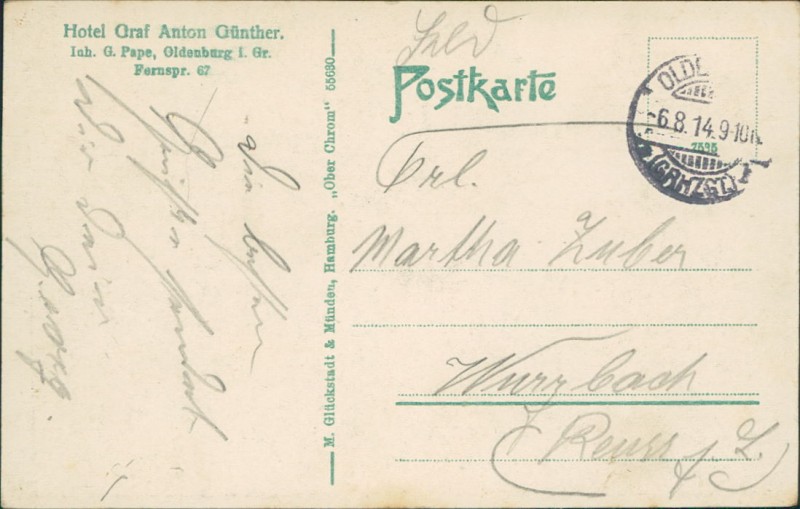 Hotel Graf Anton Günther.
Inh. G. Pape, Oldenburg i. Gr.
Fernspr. 67
Die besten
Grüße sendet
Dir Dein
Georg.
M. Glückstadt & Münden, Hamburg. „Ober Chrom“ 55680
Feld
Postkarte
OLDE
-6.8.14.9-10
7535
(GRHZGT.)
Frl.
Martha Zuber
Wurzbach
(Reuss j. L.)